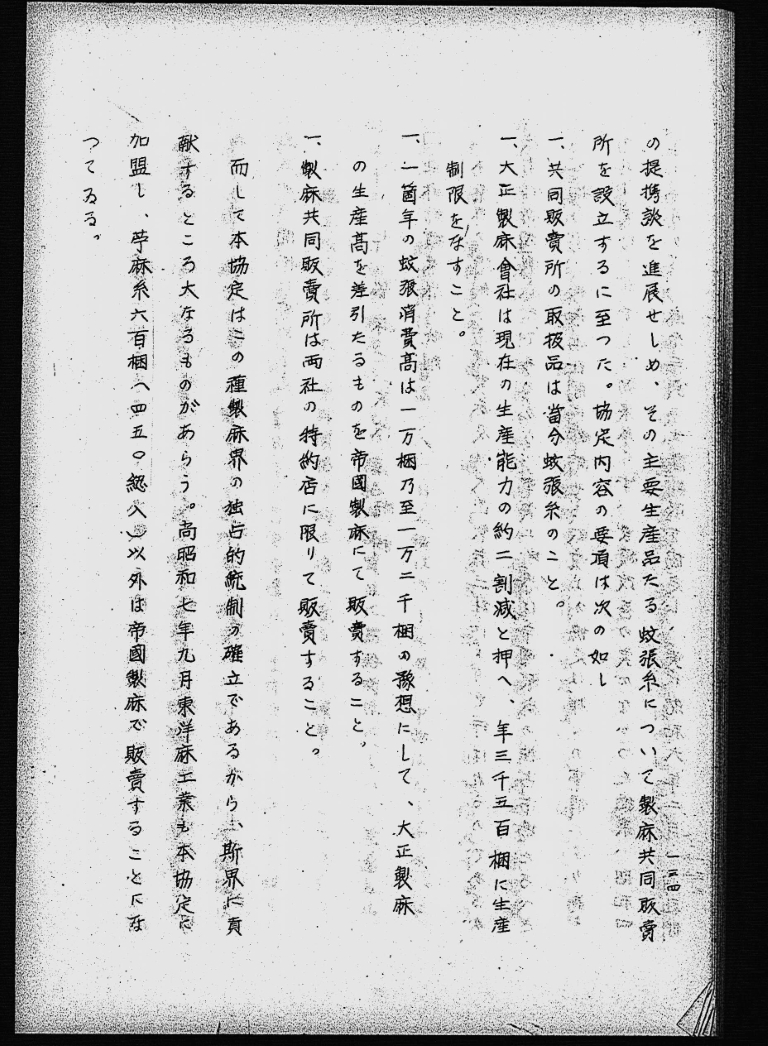 の提携談を進展せしめ、その主要生産品たる蚊張糸について製麻共同販賣
所を設立するに至つた。協定内容の要項は次の如し
一、共同販賣所の取扱品は當分蚊張糸のこと。
一、大正製麻會社は現在の生産能力の約二割減と押へ、年三千五百梱に生産
制限をなすこと。
一、一箇年の蚊張消費高は一万梱乃至一万二千梱の豫想にして、大正製麻
の生産髙を差引たるものを帝國製麻にて販賣すること。
一、製麻共同販賣所は両社の特約店に限りて販賣すること。
而して本協定はこの種製麻界の独占的統制の確立であるから、斯界に貢
献するところ大なるものがあらう。尚昭和七年九月東洋麻工業も本協定に
加盟し、苧麻糸六百梱(四五〇總入)以外は帝國製麻で販賣することにな
つてゐる。
一三四